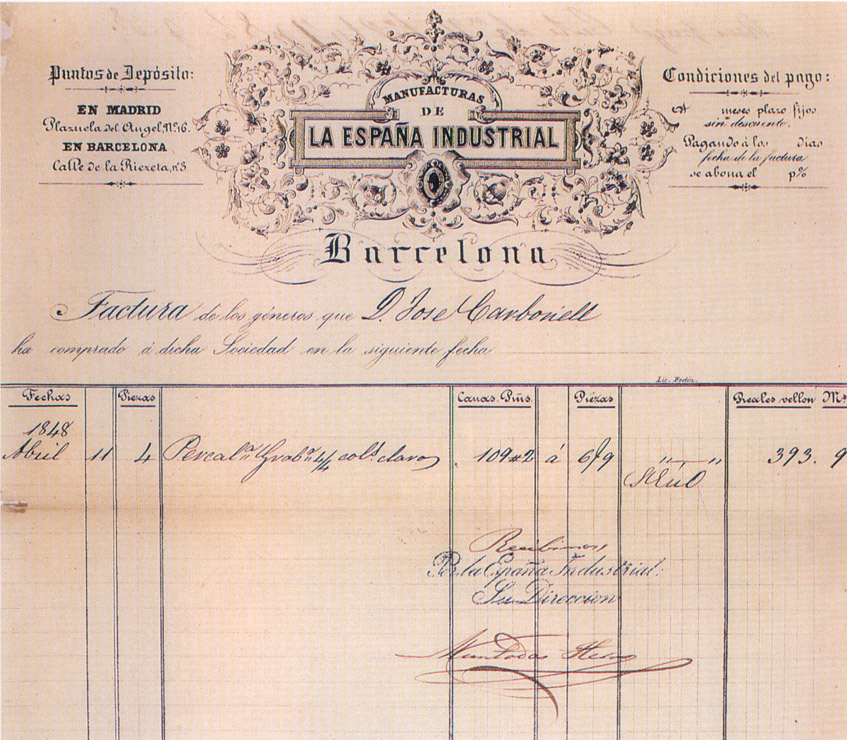 Puntos de Depósito:
EN MADRID
Plazuela del Angel, Nº 16.
EN BARCELONA
Calle de la Riereta, nº 3
MANUFACTURAS
DE
LA ESPAÑA INDUSTRIAL
Barcelona
Condiciones del pago:
A meses plazo fijos
sin descuento.
Pagando á los dias
fecha de la factura
se abona el p%
Factura de los géneros que D. Jose Carbonell
ha comprado á dicha Sociedad en la siguiente fecha
Fechas Piezas Canas. Pms. Piezas Reales vellon Ms
1848
Abril 11 4 cols claros 109 2 á 6/9 393. 9
Recibimos
Por la España Industrial.
Su Direccion
Muntadas Hermos